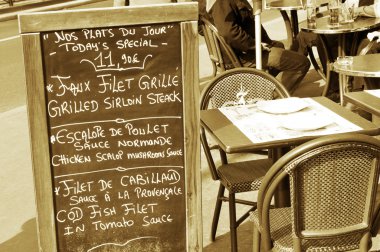 "Nos Plats du Jour"
"Today's Special"
11,90€
* Faux Filet Grillé
Grilled Sirloin Steack
* Escalope de Poulet
Sauce Normande
Chicken Scalop mushrooms Sauce
* Filet de Cabillaud
Sauce à la Provençale
Cod Fish Filet
in Tomato Sauce